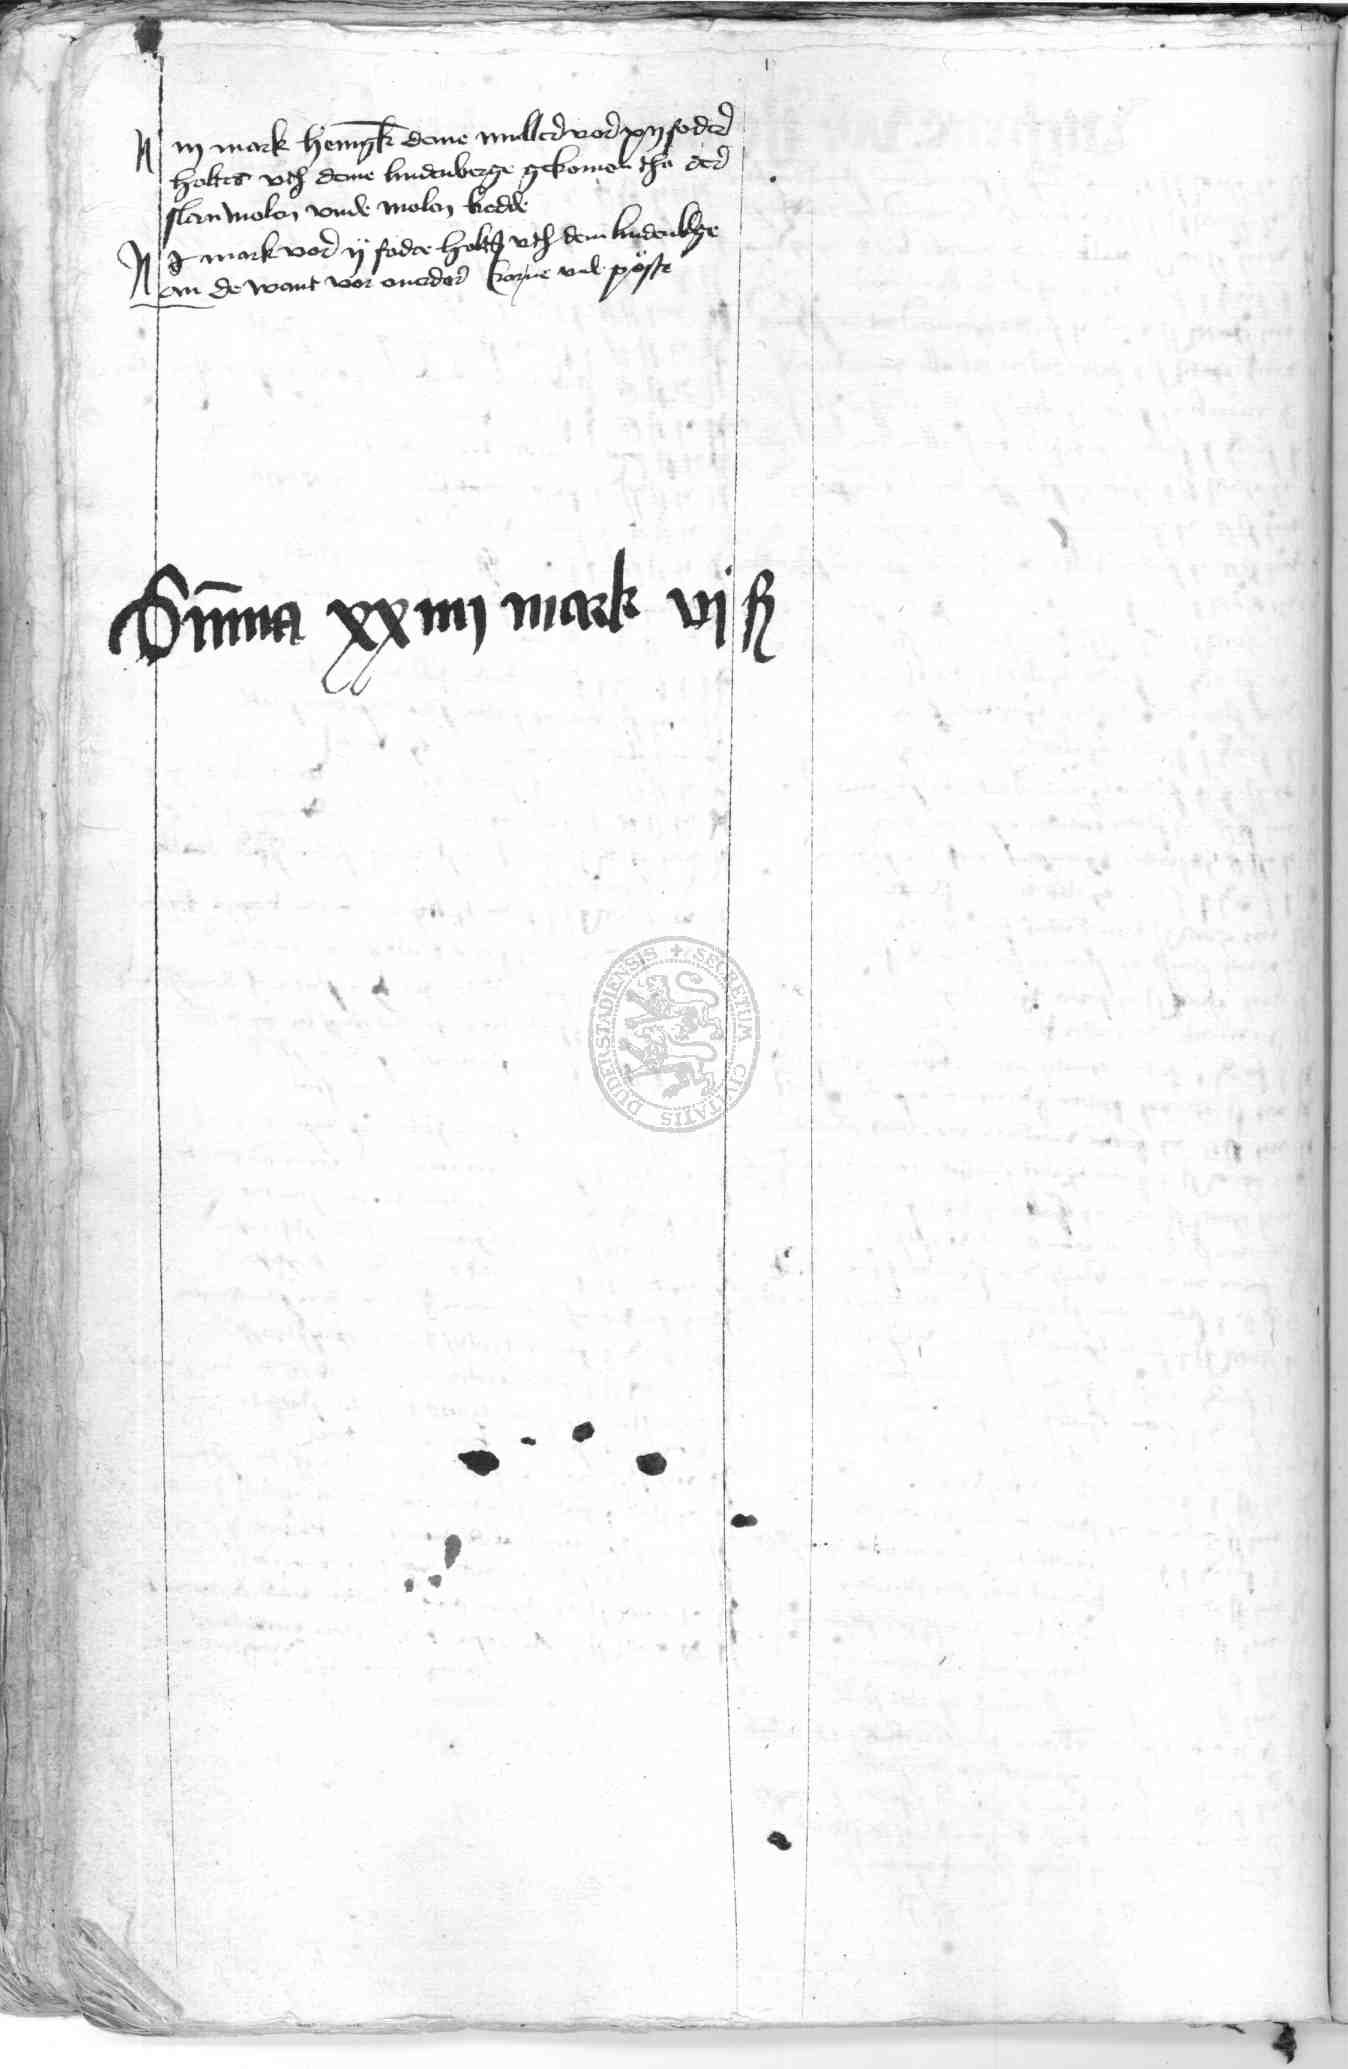 iij mark hennigk deme muller vor xij foder
holtes vth deme lindenberge gekomen tho der
slan molen vnde molen bedde
j mark vor ij foder holtz vth dem lindenb'ge
an de want vor ouer der borne vnd poste
Sum̄a xxiiij mark vj ß
SECRETUM CIVITATIS DUDERSTADIENSIS